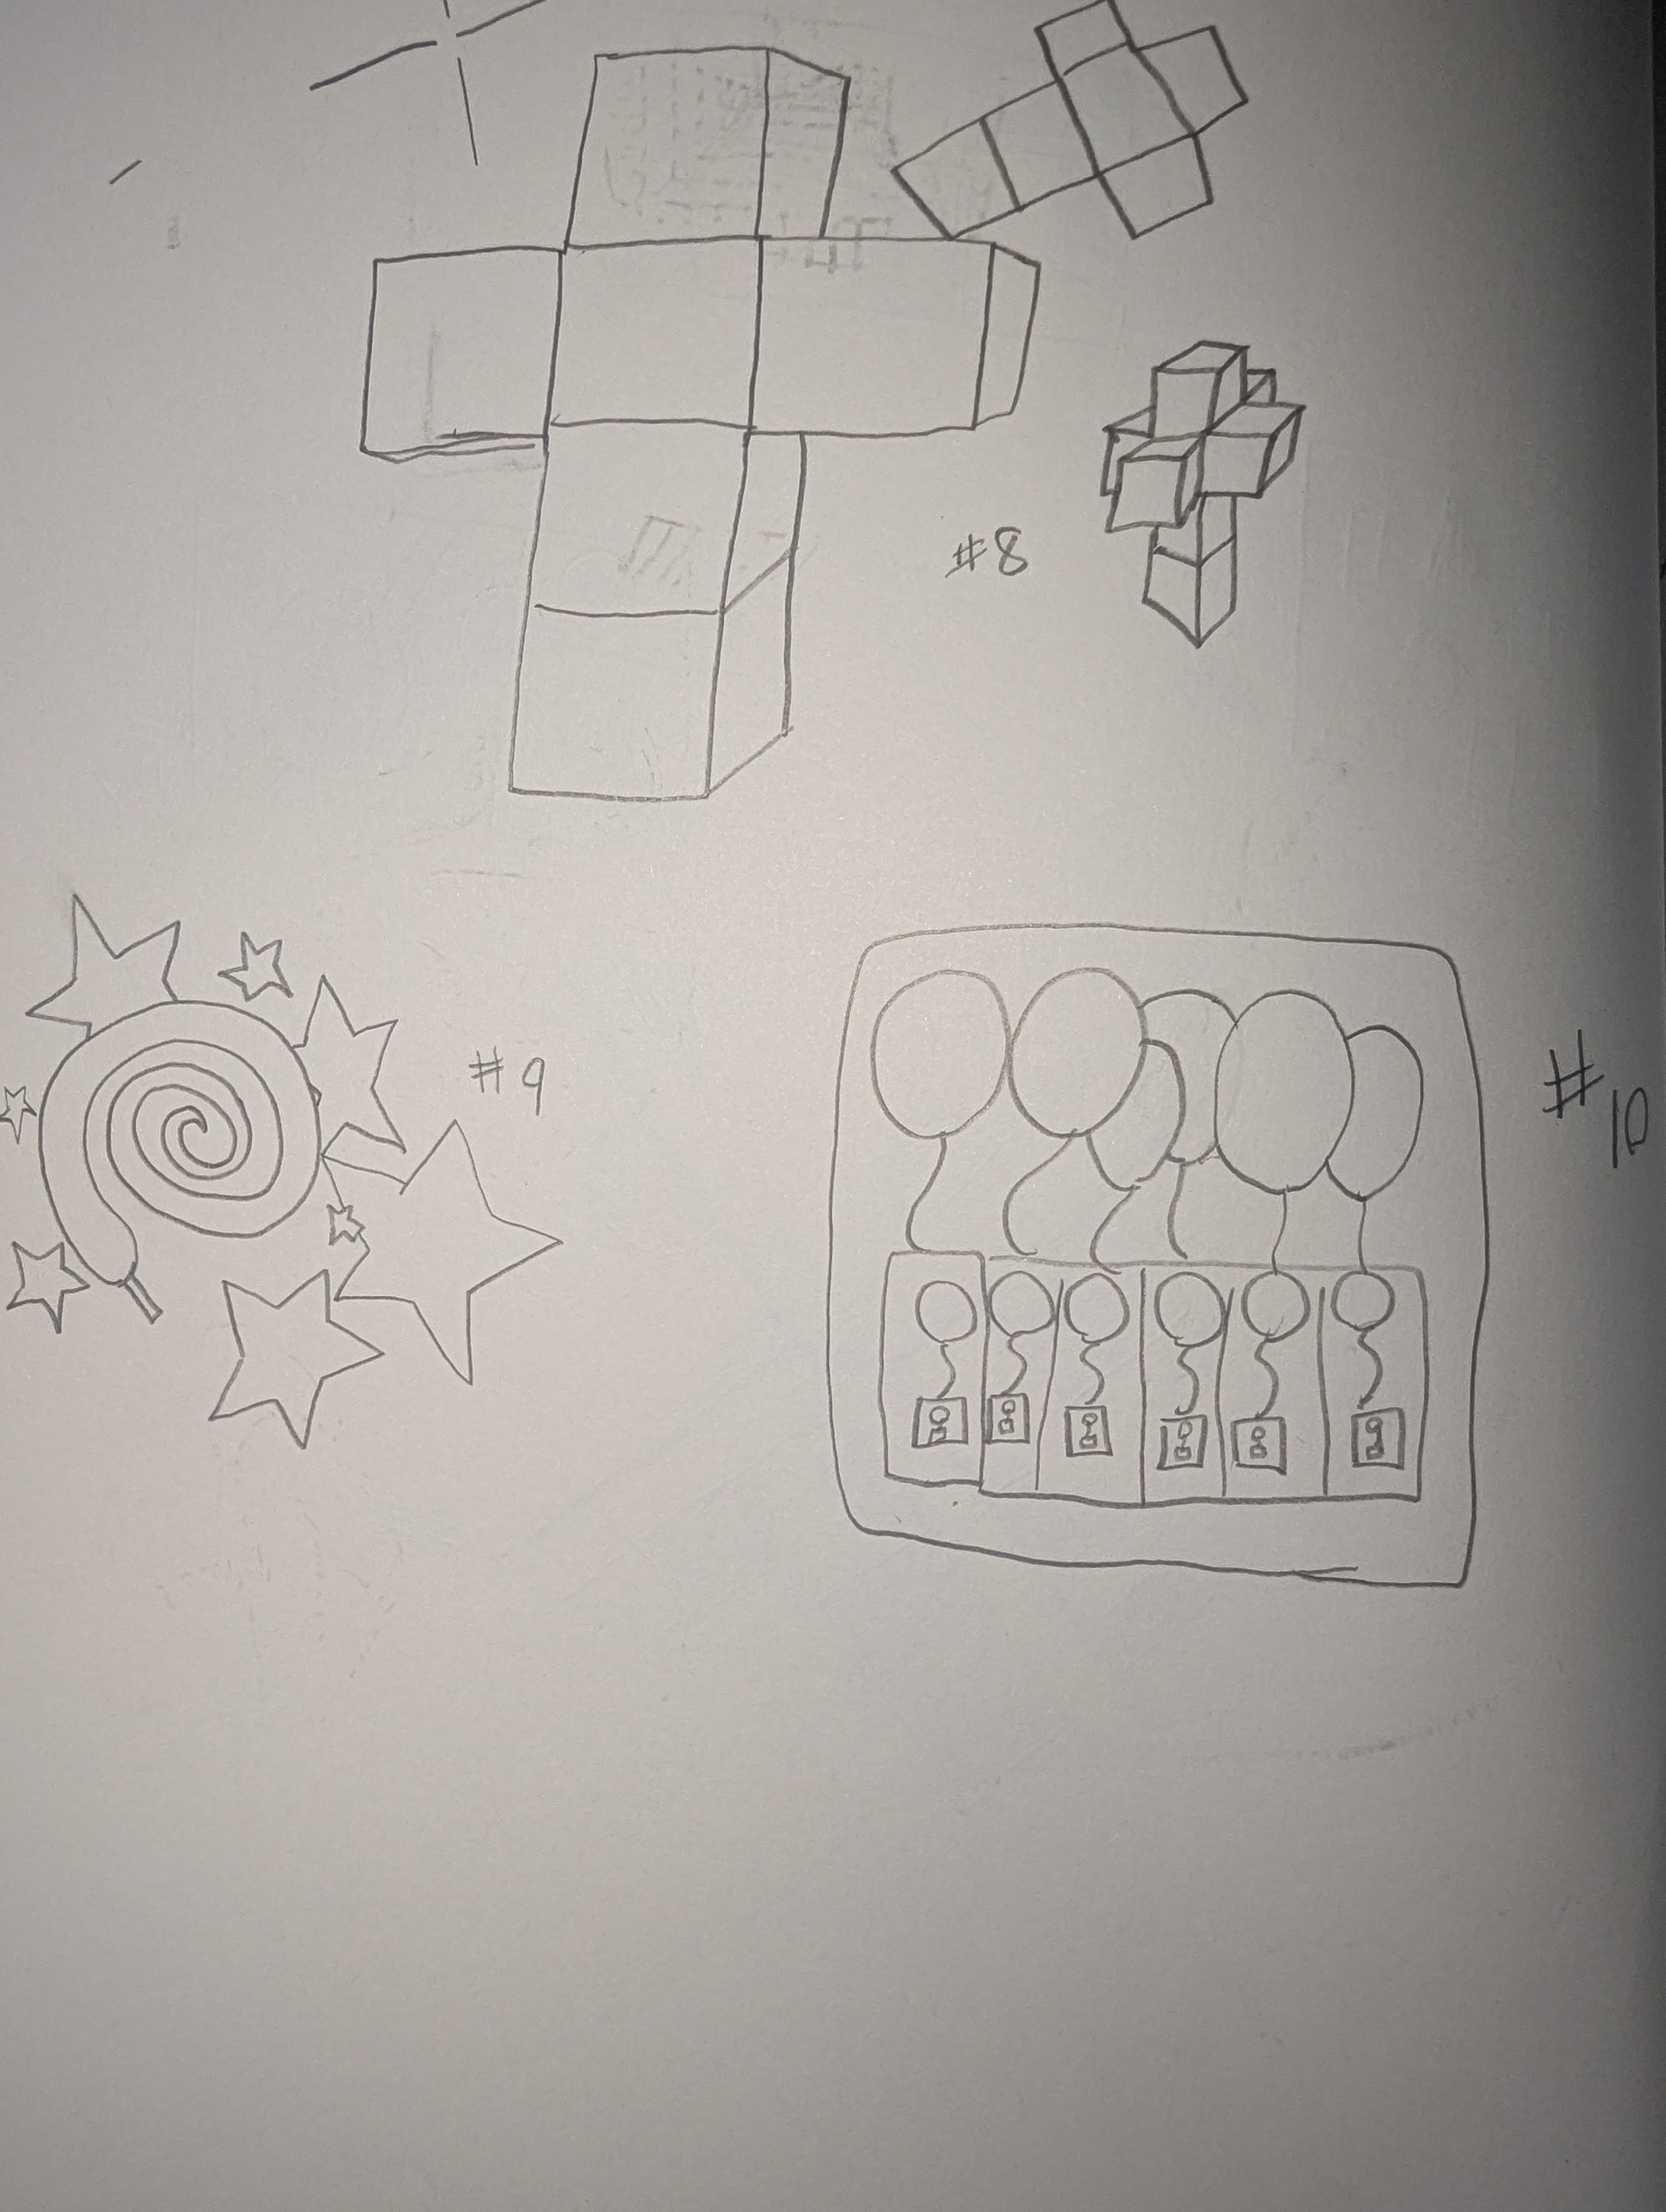 #8
#9
#10